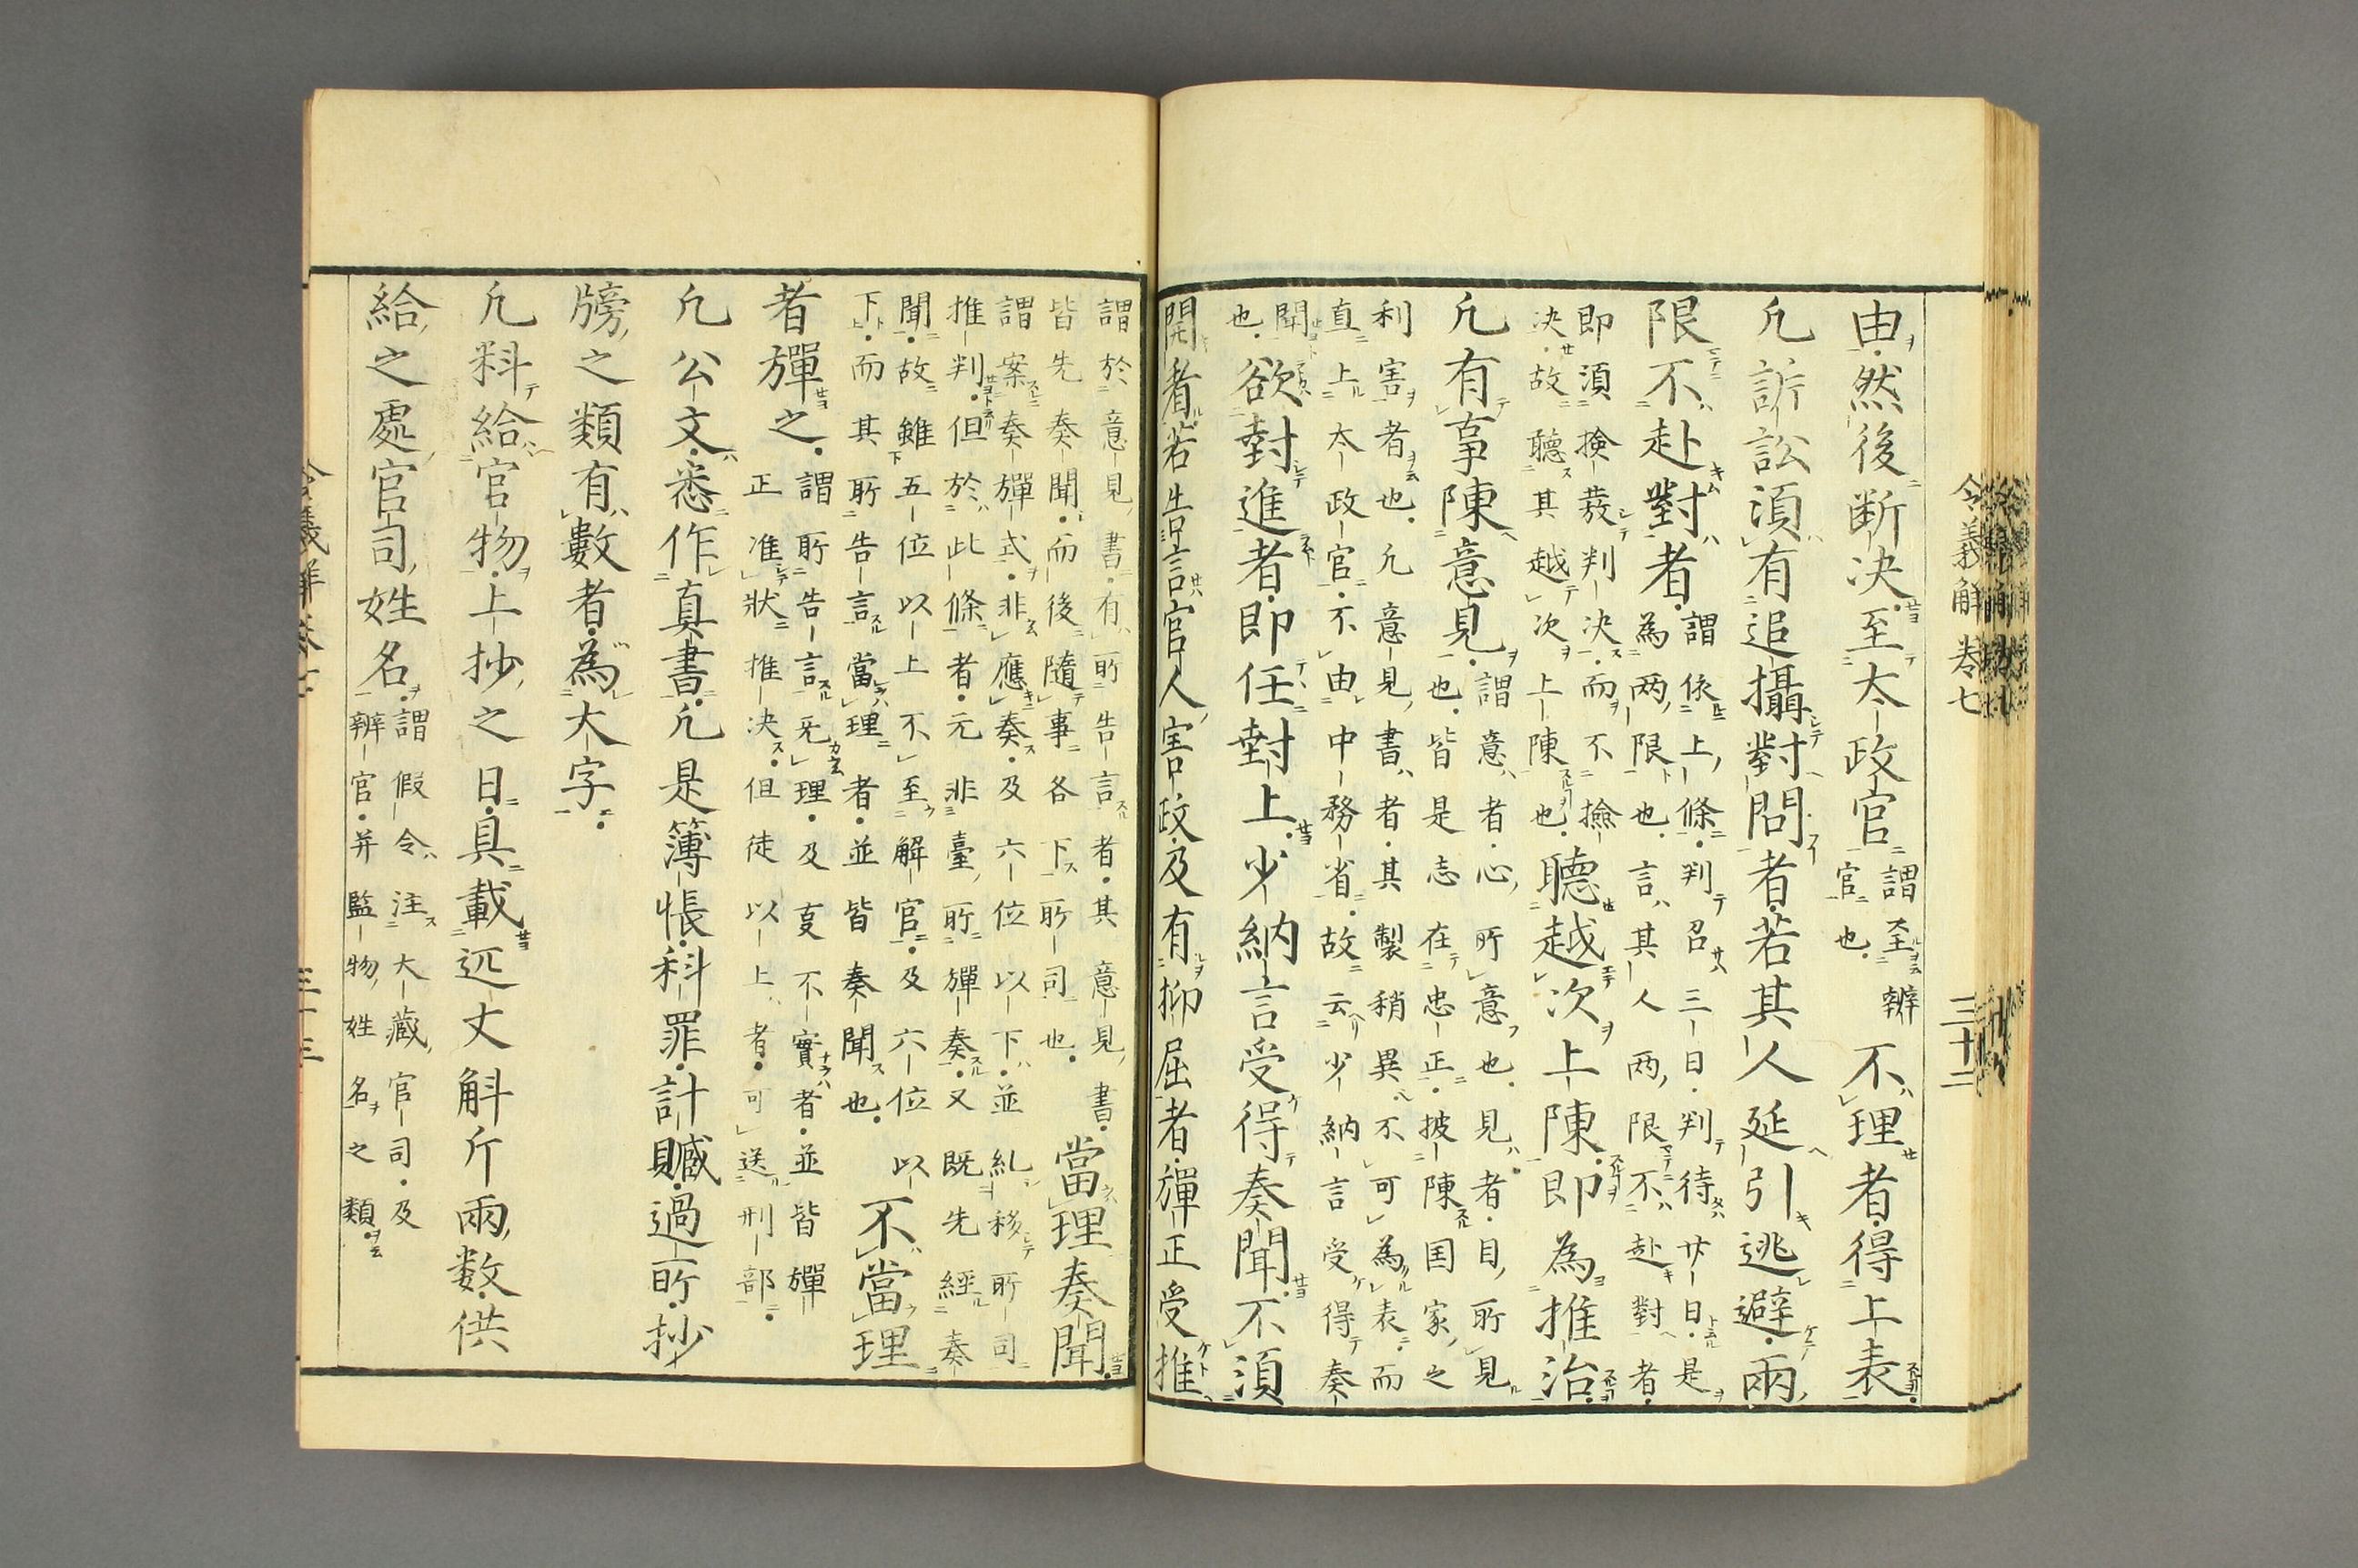 由然後断决至太政官謂至辨官也不理者得上表
凡訴訟須有追攝對問者若其人延引逃避兩
限不赴對者謂依上條判召三日判待廿日是為两限也言其人两限不赴對者
即須撿發判决而不撿决故聴其越次上陳也聴越次上陳即為推治
凡有事陳意見謂意者心所意也見者目所見也皆是志在忠正披陳国家之
利害者也凡意見書者其製稍異不可為表而直上太政官不由中務省故云少納言受得奏
聞也欲對進者即任對上少納言受得奏聞不須
開者若告言官人害政及有抑屈者彈正受推
謂於意見書有所告言者其意見書皆先奏聞而後隨事各下所司也當理奏聞
謂案奏彈式非應奏及六位以下並糺移所司推判但於此條者元非臺所彈奏又既先經奏
聞故雖五位以上不至解官及六位以下而其所告言當理者並皆奏聞也不當理
者彈之謂所告言旡理及亥不實者並皆彈正准状推决但徒以上者可送刑部
凡公文悉作真書凡是簿帳科罪計贓過所抄
牓之類有數者為大字
凡料給官物上抄之日具載𠫇丈斛斤兩数供
給之處官司姓名謂假令注大藏官司及辨官并監物姓名之類
令義解卷七
三十二